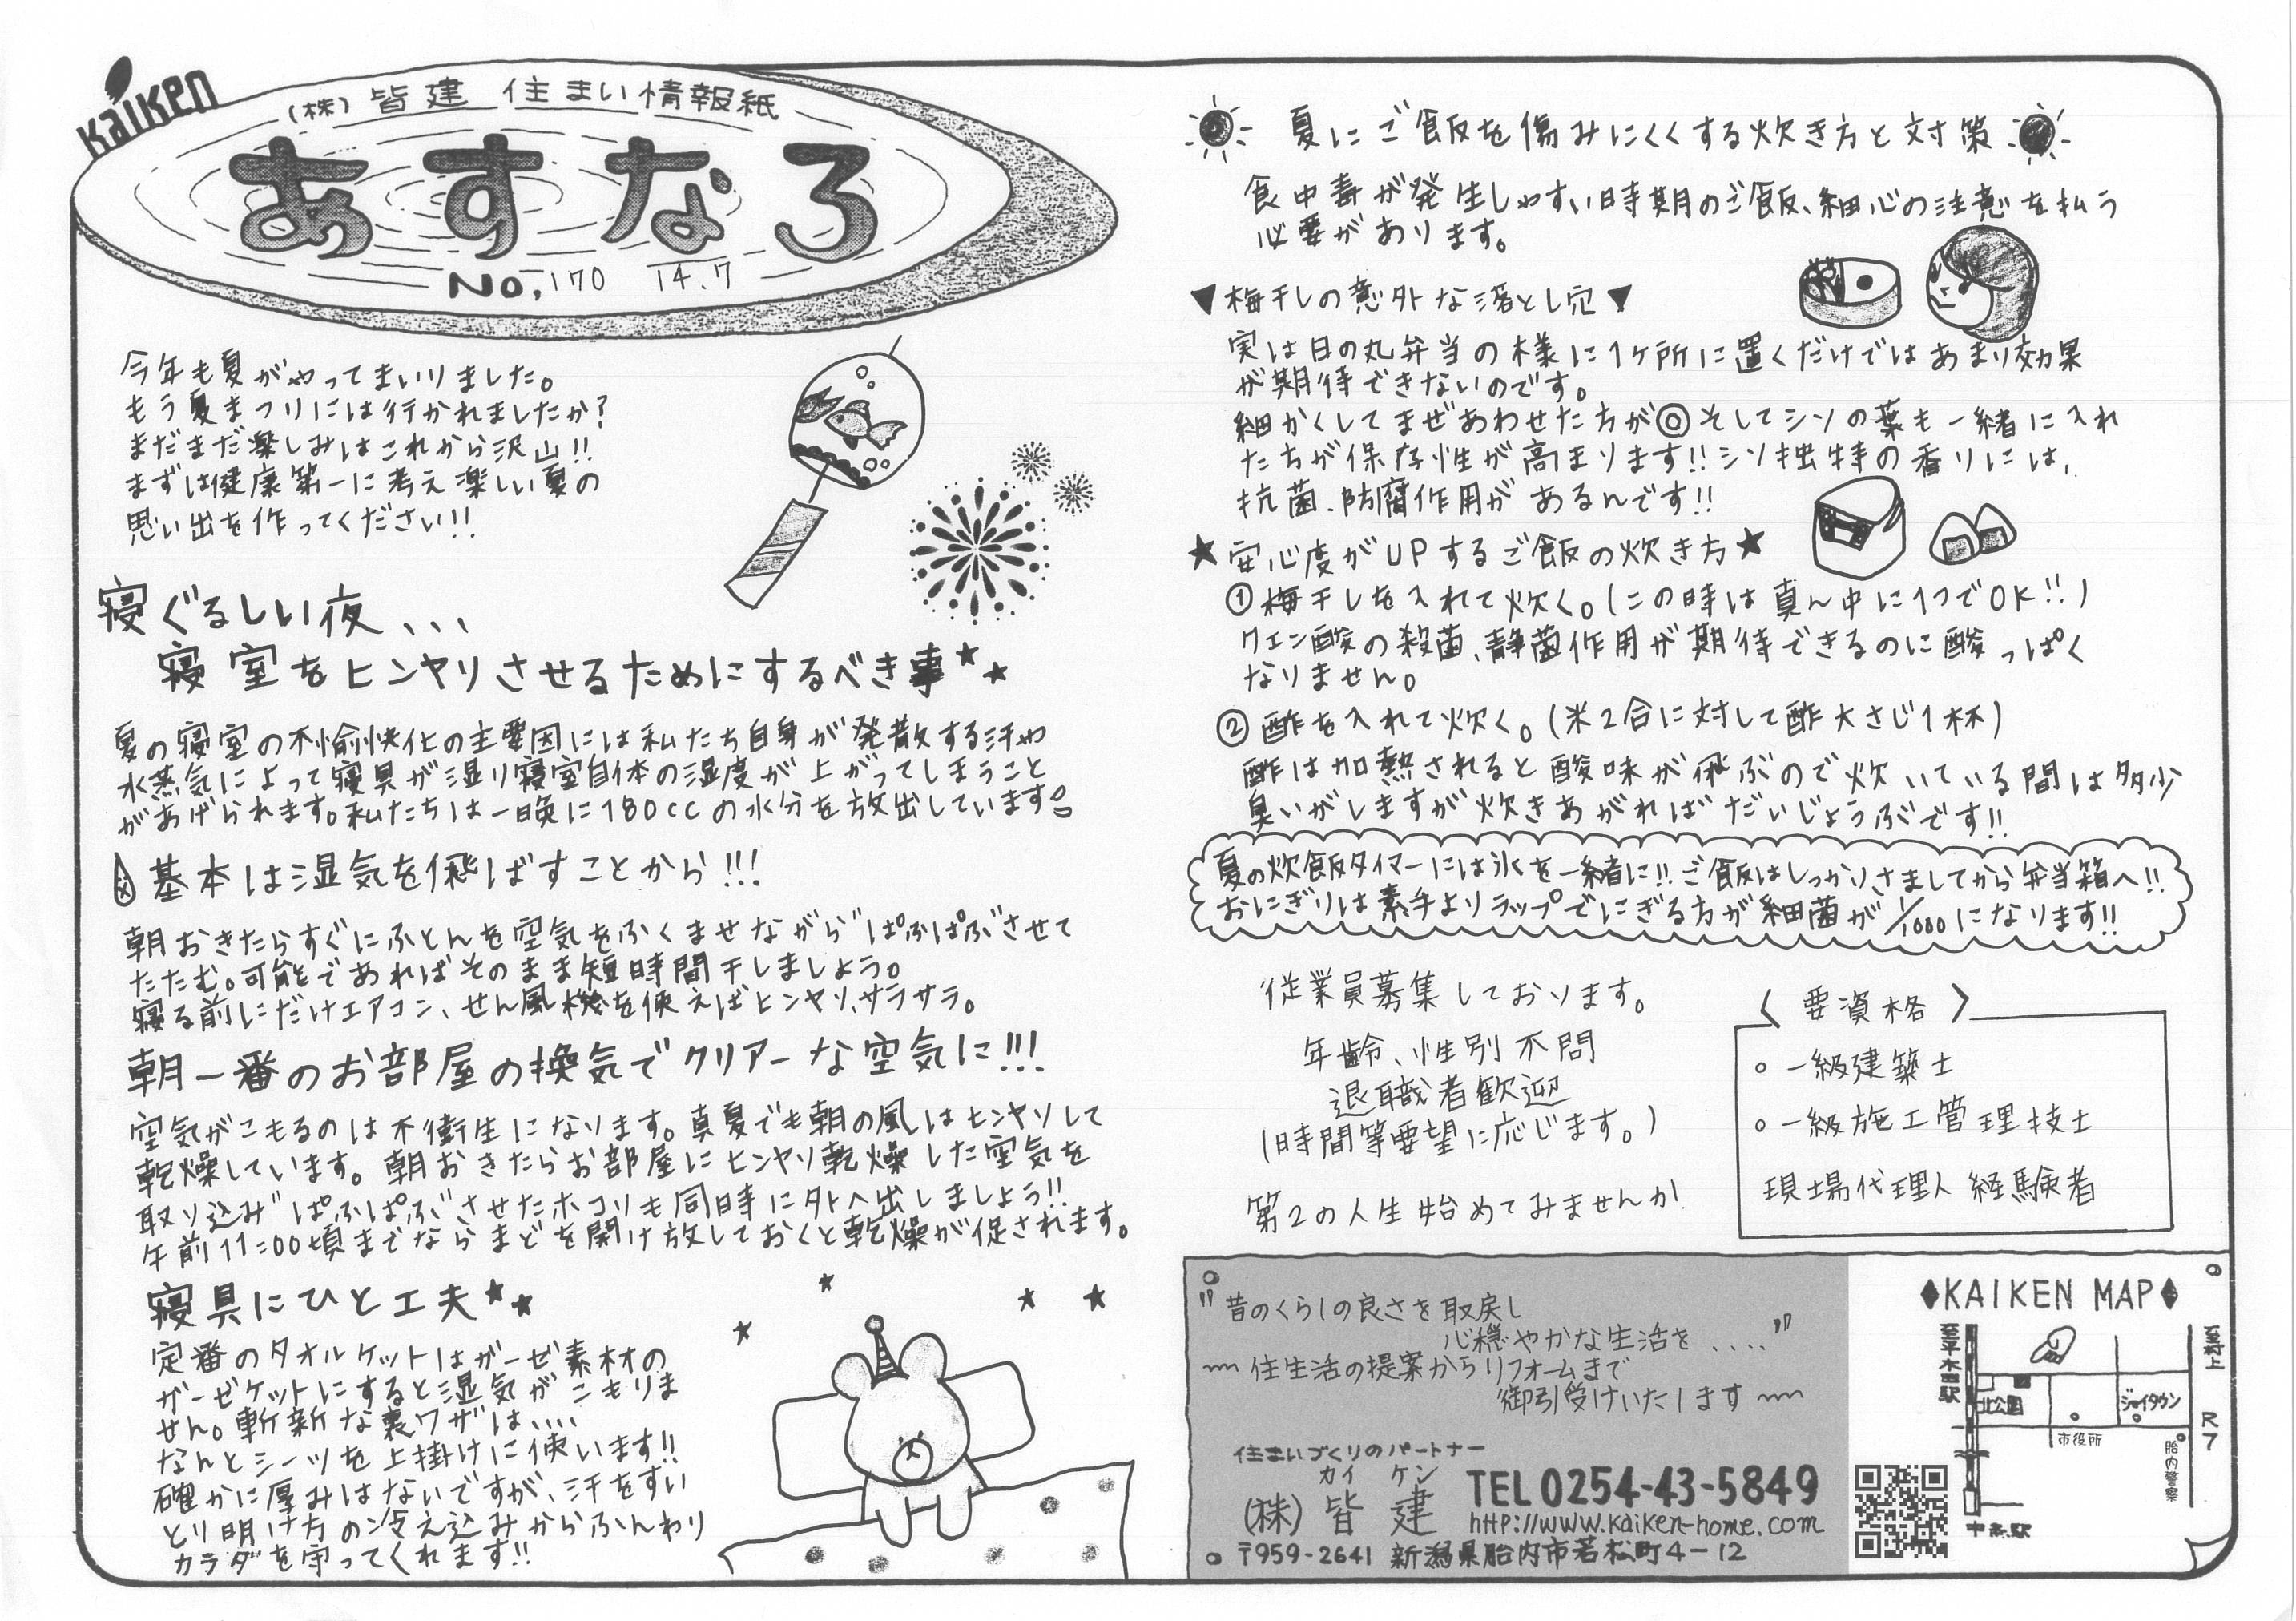 Kaiken
(株)皆建 住まい情報紙
あすなろ
No.170 14.7
今年も夏がやってまいりました。
もう夏まつりには行かれましたか?
まだまだ楽しみはこれから沢山!!
まずは健康第一に考え楽しい夏の
思い出を作ってください!!
寝ぐるしい夜、、、
寝室をヒンヤリさせるためにするべき事
夏の寝室の不愉快化の主要因には私たち自身が発散する汗や
水蒸気によって寝具が湿り寝室自体の湿度が上がってしまうこと
があげられます。私たちは一晩に180ccの水分を放出しています
基本は湿気を飛ばすことから!!!
朝おきたらすぐにふとんを空気をふくませながら"ぱふぱふ"させて
たたむ。可能であればそのまま短時間干しましょう。
寝る前にだけエアコン、せん風機を使えばヒンヤリ、サラサラ。
朝一番のお部屋の換気でクリアーな空気に!!!
空気がこもるのは不衛生になります。真夏でも朝の風はヒンヤリして
乾燥しています。朝おきたらお部屋にヒンヤリ乾燥した空気を
取り込み"ぱふぱふ"させたホコリも同時に外へ出しましょう!!
午前11:00頃までならまどを開け放しておくと乾燥が促されます。
寝具にひと工夫
定番のタオルケットはガーゼ素材の
ガーゼケットにすると湿気がこもりま
せん。斬新な裏ワザは、、、、
なんとシーツを上掛けに使います!!
確かに厚みはないですが、汗をすい
とり明け方の冷え込みからふんわり
カラダを守ってくれます!!
夏にご飯を傷みにくくする炊き方と対策
食中毒が発生しやすい時期のご飯、細心の注意を払う
必要があります。
▼梅干しの意外な落とし穴▼
実は日の丸弁当の様に1ヶ所に置くだけではあまり効果
が期待できないのです。
細かくしてまぜあわせた方が◎そしてシソの葉も一緒に入れ
たちが保存性が高まります!!シソ独特の香りには、
抗菌、防腐作用があるんです!!
★安心度がUPするご飯の炊き方★
①梅干しを入れて炊く。(この時は真ん中に1つでOK!!)
クエン酸の殺菌、静菌作用が期待できるのに酸っぱく
なりません。
②酢を入れて炊く。(米2合に対して酢大さじ1杯)
酢は加熱されると酸味が飛ぶので炊いている間は多少
臭いがしますが炊きあがればだいじょうぶです!!
夏の炊飯タイマーには氷を一緒に!!ご飯はしっかりさましてから弁当箱へ!!
おにぎりは素手よりラップでにぎる方が細菌が1/1000になります!!
従業員募集しております。
年齢、性別不問
退職者歓迎
(時間等要望に応じます。)
第2の人生始めてみませんか
〈要資格〉
○一級建築士
○一級施工管理技士
現場代理人経験者
"昔のくらしの良さを取戻し
心穏やかな生活を...."
〜住生活の提案からリフォームまで
御引受けいたします〜
住まいづくりのパートナー
カイ ケン
(株)皆建 TEL0254-43-5849
http://www.kaiken-home.com
〒959-2641 新潟県胎内市若松町4-12
◆KAIKEN MAP◆
至平木田駅
至村上
北公園
ジョイタウン
R7
市役所
胎内警察
中条駅